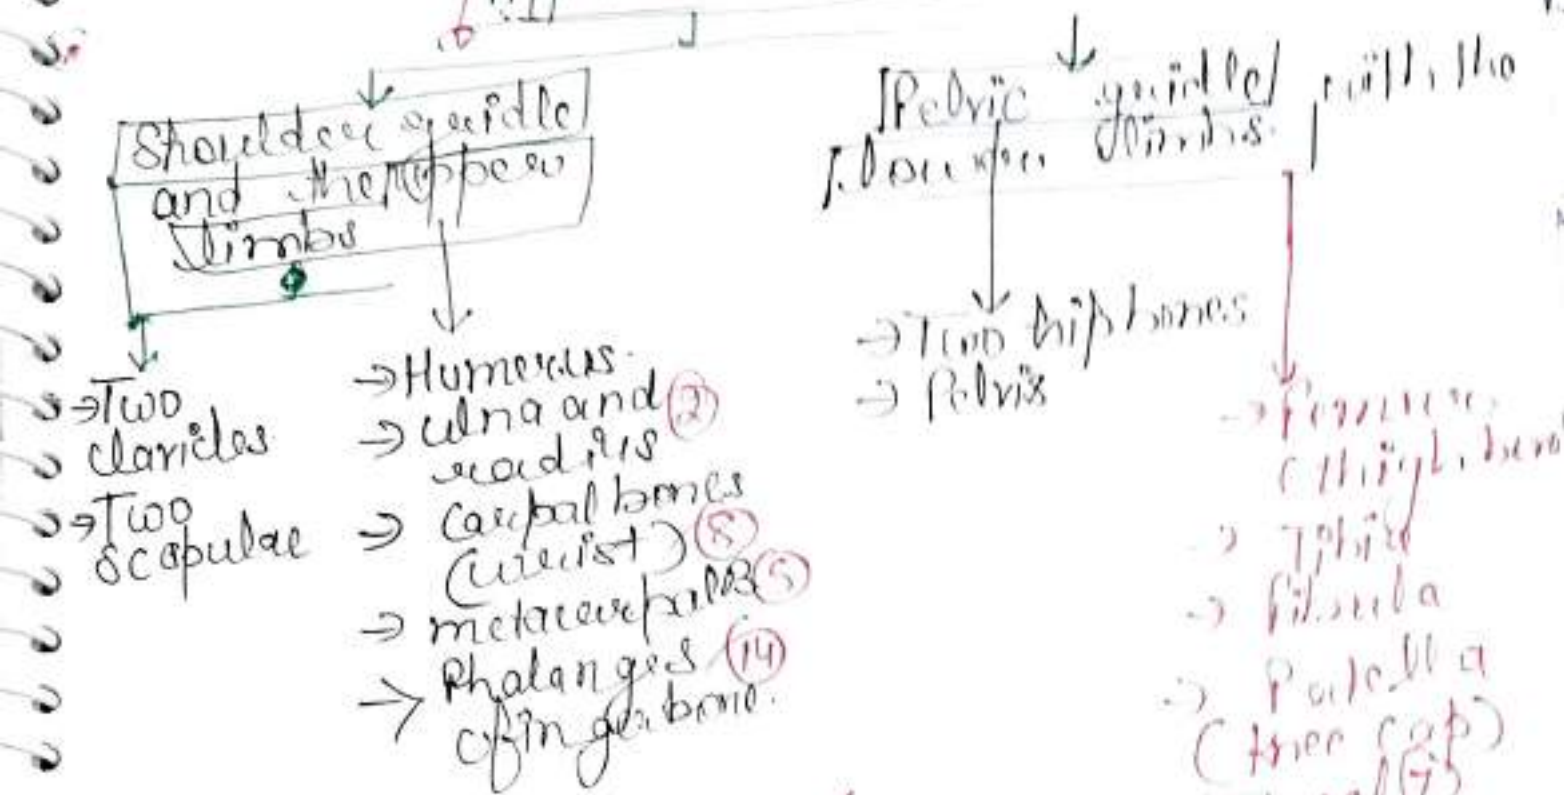 Shoulder guidle
and the upper
limbs
→Two
clavicles
→Two
scapulae
→Humerus.
→ ulna and (2)
radius
→ carpal bones
(wrist) (8)
→ metacarpals (5)
→ Phalanges (14)
(finger bone.
[Pelvic guidle] with the
lower limbs.
→ Two hip bones
→ Pelvis
→ Femur
(thigh bone
→ Tibia
→ fibula
→ Patella
(knee cap)
(7)